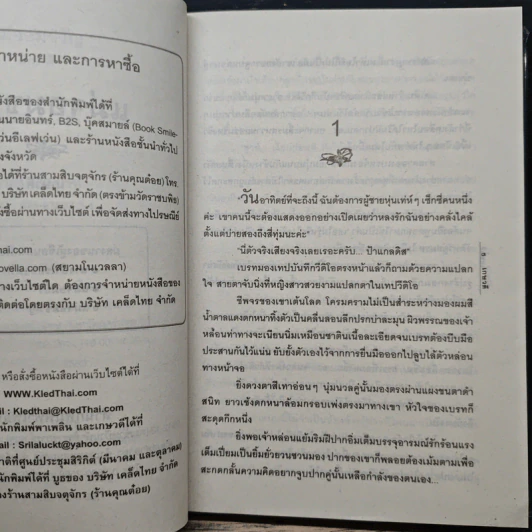 าหน่าย และการหาซื้อ
นังสือของสำนักพิมพ์ได้ที่
นนายอินทร์, B2S, บุ๊คสมายล์ (Book Smile-
ว่นอีเลฟเว่น) และร้านหนังสือชั้นนำทั่วไป
งจังหวัด
อได้ที่ร้านสามสิบจตุจักร (ร้านคุณต๋อย) โทร.
บริษัท เคล็ดไทย จำกัด (ตรงข้ามวัดราชบพิธ)
งซื้อผ่านทางเว็บไซต์ เพื่อจัดส่งทางไปรษณีย์
hai.com
ovella.com (สยามโนเวลลา)
างเว็บไซต์ใด ต้องการจำหน่ายหนังสือของ
ติดต่อโดยตรงกับ บริษัท เคล็ดไทย จำกัด
หรือสั่งซื้อหนังสือผ่านเว็บไซต์ได้ที่
WWW.KledThai.com
il : Kledthai@KledThai.com
นักพิมพ์พาเพลิน และเกษวดีได้ที่
ail : Srilaluckt@yahoo.com
าติที่ศูนย์ประชุมสิริกิติ์ (มีนาคม และตุลาคม)
นักพิมพ์ได้ที่ บูธของ บริษัท เคล็ดไทย จำกัด
องร้านสามสิบจตุจักร (ร้านคุณต๋อย)
1
"วันอาทิตย์ที่จะถึงนี้ ฉันต้องการผู้ชายหุ่นเท่ห์ๆ เซ็กซี่คนหนึ่ง
ค่ะ เขาคนนี้จะต้องแสดงออกอย่างเปิดเผยว่าหลงรักฉันอย่างคลั่งไคล้
ตั้งแต่บ่ายสองถึงสี่ทุ่มนะคะ"
"นี่ตัวจริงเสียงจริงเลยเรอะครับ... ป้าแกลดิส"
เบรทมองเทปบันทึกวีดิโอตรงหน้าแล้วก็ถามด้วยความแปลก
ใจ สายตาจับนิ่งที่หญิงสาวสวยงามแปลกตาในเทปวีดิโอ
ชีพจรของเขาเต้นโลด โครมครามไม่เป็นส่ำระหว่างมองผมสี
น้ำตาลแดงดกหนาทิ้งตัวเป็นคลื่นลอนลึกปรกบ่าละมุน ผิวพรรณของเจ้า
หล่อนท่าทางจะเนียนนิ่มเหมือนซาตินเนื้อละเอียดจนเบรทต้องบีบมือ
ประสานกันไว้แน่น ยับยั้งตัวเองไว้จากการยื่นมือออกไปลูบไล้ตัวหล่อน
ทางหน้าจอ
ยิ่งดวงตาสีเทาอ่อนๆ นุ่มนวลคู่นั้นมองตรงผ่านแผงขนตาดำ
สนิท ยาวเช้งดกหนาล้อมกรอบเพ่งตรงมาทางเขา หัวใจของเบรทก็
สะดุดกึกหนึ่ง
ยิ่งพอเจ้าหล่อนแย้มริมฝีปากอิ่มเต็มบรรจุอารมณ์รักร้อนแรง
เต็มเปี่ยมเป็นยิ้มยั่วยวนชวนมอง ปากของเขาก็พลอยต้องเม้มตามเพื่อ
สะกดกลั้นความคิดอยากจูบปากคู่นั้นเหลือกำลังของตนเอง...
๑ เกษวดี